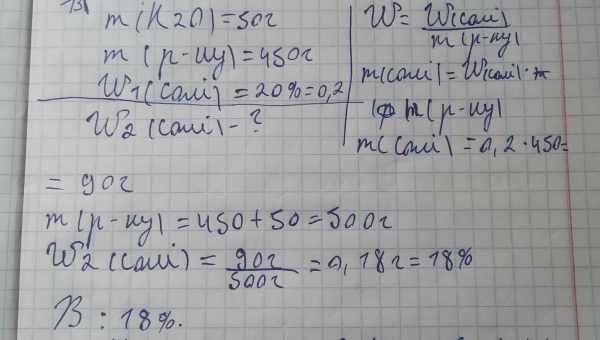 m(H2O)=50г
m(р-ну)=450г
W1(солі)=20%=0,2
W2(солі)-?
W=W(солі)/m(р-ну)
m(солі)=W(солі)·
m(р-ну)
m(солі)=0,2·450=
=90г
m(р-ну)=450+50=500г
W2(солі)=90г/500г=0,18г=18%
В:18%.